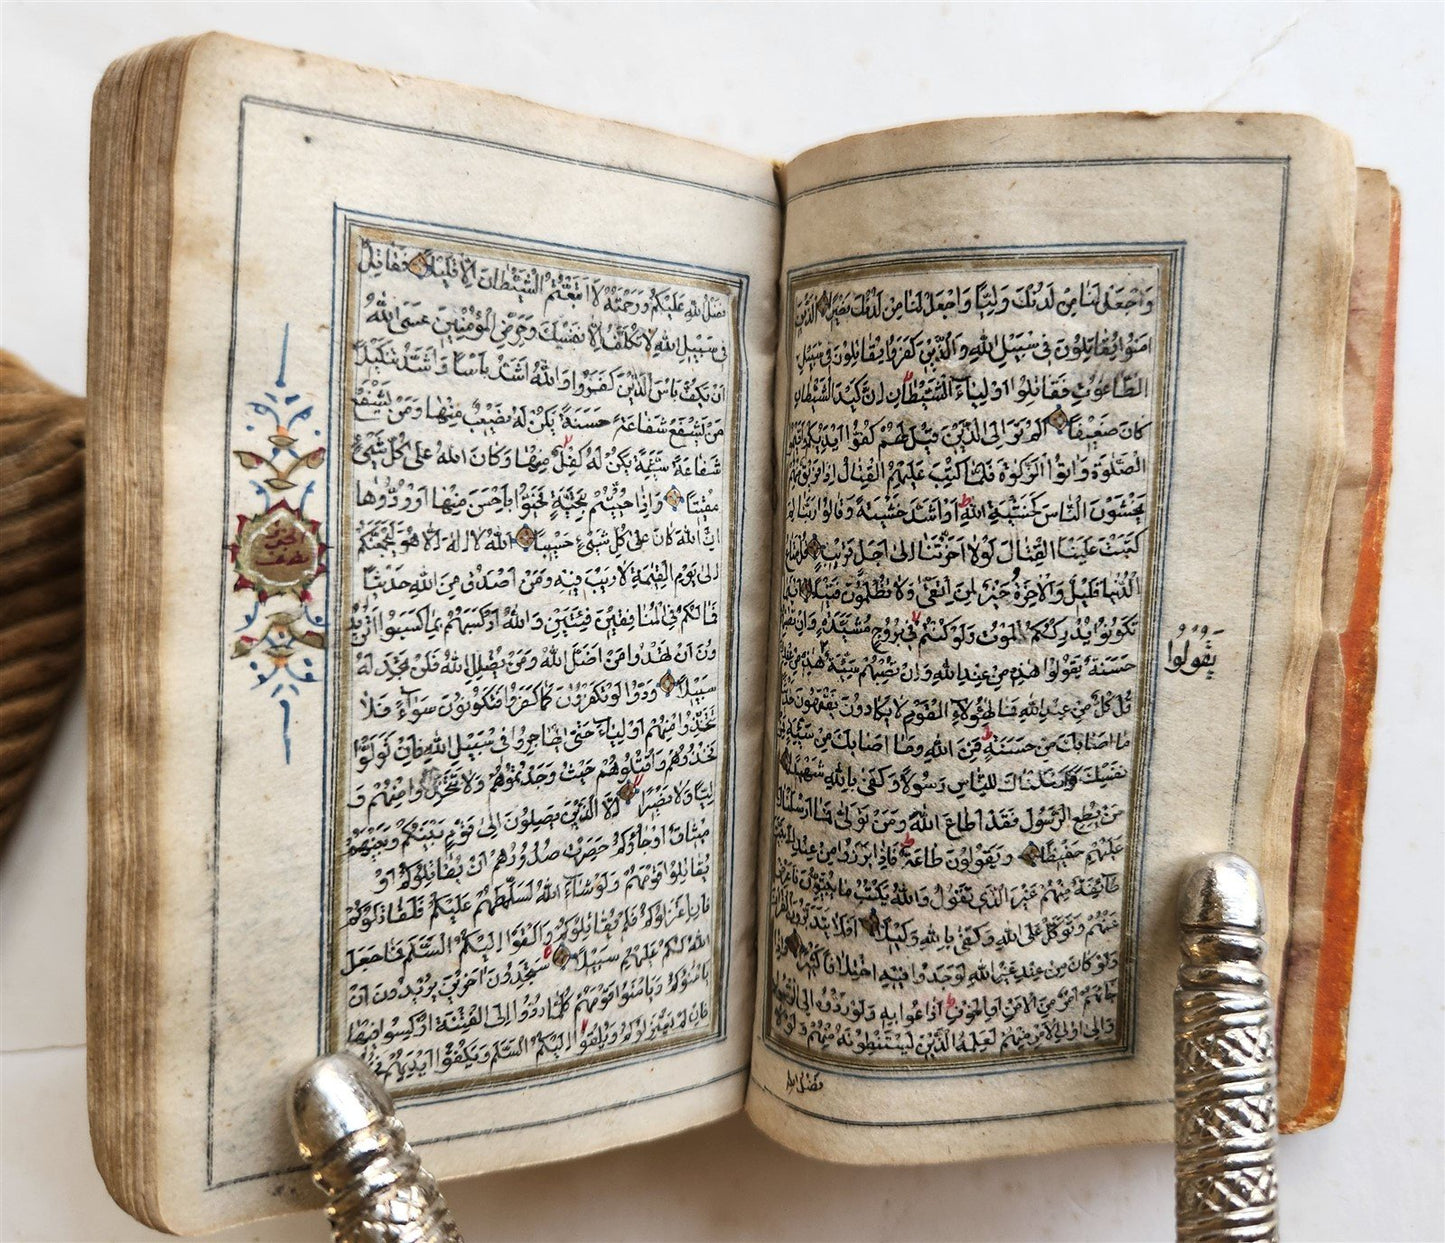 وَاجْعَلْ لَنَا مِنْ لَدُنْكَ وَلِيًّا وَاجْعَلْ لَنَا مِنْ لَدُنْكَ نَصِيرًا الَّذِينَ
امَنُوا يُقَاتِلُونَ فِي سَبِيلِ اللّٰهِ وَالَّذِينَ كَفَرُوا يُقَاتِلُونَ فِي سَبِيلِ
الطَّاغُوتِ فَقَاتِلُوا اَوْلِيَاءَ الشَّيْطَانِ اِنَّ كَيْدَ الشَّيْطَانِ
كَانَ ضَعِيفًا اَلَمْ تَرَ اِلَى الَّذِينَ قِيلَ لَهُمْ كُفُّوا اَيْدِيَكُمْ وَاَقِيمُوا
الصَّلٰوةَ وَاٰتُوا الزَّكٰوةَ فَلَمَّا كُتِبَ عَلَيْهِمُ الْقِتَالُ اِذَا فَرِيقٌ مِنْهُمْ
يَخْشَوْنَ النَّاسَ كَخَشْيَةِ اللّٰهِ اَوْ اَشَدَّ خَشْيَةً وَقَالُوا رَبَّنَا لِمَ
كَتَبْتَ عَلَيْنَا الْقِتَالَ لَوْلَا اَخَّرْتَنَا اِلٰى اَجَلٍ قَرِيبٍ قُلْ مَتَاعُ
الدُّنْيَا قَلِيلٌ وَالْاٰخِرَةُ خَيْرٌ لِمَنِ اتَّقٰى وَلَا تُظْلَمُونَ فَتِيلًا اَيْنَمَا
تَكُونُوا يُدْرِكْكُمُ الْمَوْتُ وَلَوْ كُنْتُمْ فِي بُرُوجٍ مُشَيَّدَةٍ وَاِنْ تُصِبْهُمْ
حَسَنَةٌ يَقُولُوا هٰذِهِ مِنْ عِنْدِ اللّٰهِ وَاِنْ تُصِبْهُمْ سَيِّئَةٌ هٰذِهِ مِنْ عِنْدِكَ
يَقُولُوا
قُلْ كُلٌّ مِنْ عِنْدِ اللّٰهِ فَمَالِ هٰؤُلَاءِ الْقَوْمِ لَا يَكَادُونَ يَفْقَهُونَ حَدِيثًا
مَا اَصَابَكَ مِنْ حَسَنَةٍ فَمِنَ اللّٰهِ وَمَا اَصَابَكَ مِنْ سَيِّئَةٍ فَمِنْ
نَفْسِكَ وَاَرْسَلْنَاكَ لِلنَّاسِ رَسُولًا وَكَفٰى بِاللّٰهِ شَهِيدًا
مَنْ يُطِعِ الرَّسُولَ فَقَدْ اَطَاعَ اللّٰهَ وَمَنْ تَوَلّٰى فَمَا اَرْسَلْنَاكَ
عَلَيْهِمْ حَفِيظًا وَيَقُولُونَ طَاعَةٌ فَاِذَا بَرَزُوا مِنْ عِنْدِكَ بَيَّتَ
طَائِفَةٌ مِنْهُمْ غَيْرَ الَّذِي تَقُولُ وَاللّٰهُ يَكْتُبُ مَا يُبَيِّتُونَ فَاَعْرِضْ
عَنْهُمْ وَتَوَكَّلْ عَلَى اللّٰهِ وَكَفٰى بِاللّٰهِ وَكِيلًا اَفَلَا يَتَدَبَّرُونَ الْقُرْاٰنَ
وَلَوْ كَانَ مِنْ عِنْدِ غَيْرِ اللّٰهِ لَوَجَدُوا فِيهِ اخْتِلَافًا كَثِيرًا وَاِذَا
جَاءَهُمْ اَمْرٌ مِنَ الْاَمْنِ اَوِ الْخَوْفِ اَذَاعُوا بِهِ وَلَوْ رَدُّوهُ اِلَى الرَّسُولِ
وَاِلٰى اُولِي الْاَمْرِ مِنْهُمْ لَعَلِمَهُ الَّذِينَ يَسْتَنْبِطُونَهُ مِنْهُمْ وَلَوْلَا
فضل الله
فَضْلُ اللّٰهِ عَلَيْكُمْ وَرَحْمَتُهُ لَاتَّبَعْتُمُ الشَّيْطَانَ اِلَّا قَلِيلًا فَقَاتِلْ
فِي سَبِيلِ اللّٰهِ لَا تُكَلَّفُ اِلَّا نَفْسَكَ وَحَرِّضِ الْمُؤْمِنِينَ عَسَى اللّٰهُ
اَنْ يَكُفَّ بَأْسَ الَّذِينَ كَفَرُوا وَاللّٰهُ اَشَدُّ بَأْسًا وَاَشَدُّ تَنْكِيلًا
مَنْ يَشْفَعْ شَفَاعَةً حَسَنَةً يَكُنْ لَهُ نَصِيبٌ مِنْهَا وَمَنْ يَشْفَعْ
شَفَاعَةً سَيِّئَةً يَكُنْ لَهُ كِفْلٌ مِنْهَا وَكَانَ اللّٰهُ عَلٰى كُلِّ شَيْءٍ
مُقِيتًا وَاِذَا حُيِّيتُمْ بِتَحِيَّةٍ فَحَيُّوا بِاَحْسَنَ مِنْهَا اَوْ رُدُّوهَا
اِنَّ اللّٰهَ كَانَ عَلٰى كُلِّ شَيْءٍ حَسِيبًا اَللّٰهُ لَا اِلٰهَ اِلَّا هُوَ لَيَجْمَعَنَّكُمْ
اِلٰى يَوْمِ الْقِيٰمَةِ لَا رَيْبَ فِيهِ وَمَنْ اَصْدَقُ مِنَ اللّٰهِ حَدِيثًا
فَمَا لَكُمْ فِي الْمُنَافِقِينَ فِئَتَيْنِ وَاللّٰهُ اَرْكَسَهُمْ بِمَا كَسَبُوا اَتُرِيدُ
ونَ اَنْ تَهْدُوا مَنْ اَضَلَّ اللّٰهُ وَمَنْ يُضْلِلِ اللّٰهُ فَلَنْ تَجِدَ لَهُ
سَبِيلًا وَدُّوا لَوْ تَكْفُرُونَ كَمَا كَفَرُوا فَتَكُونُونَ سَوَاءً فَلَا
تَتَّخِذُوا مِنْهُمْ اَوْلِيَاءَ حَتّٰى يُهَاجِرُوا فِي سَبِيلِ اللّٰهِ فَاِنْ تَوَلَّوْا
فَخُذُوهُمْ وَاقْتُلُوهُمْ حَيْثُ وَجَدْتُمُوهُمْ وَلَا تَتَّخِذُوا مِنْهُمْ وَ
لِيًّا وَلَا نَصِيرًا اِلَّا الَّذِينَ يَصِلُونَ اِلٰى قَوْمٍ بَيْنَكُمْ وَبَيْنَهُمْ
مِيثَاقٌ اَوْ جَاؤُكُمْ حَصِرَتْ صُدُورُهُمْ اَنْ يُقَاتِلُوكُمْ اَوْ
يُقَاتِلُوا قَوْمَهُمْ وَلَوْ شَاءَ اللّٰهُ لَسَلَّطَهُمْ عَلَيْكُمْ فَلَقَاتَلُوكُمْ
فَاِنِ اعْتَزَلُوكُمْ فَلَمْ يُقَاتِلُوكُمْ وَاَلْقَوْا اِلَيْكُمُ السَّلَمَ فَمَا جَعَلَ
اللّٰهُ لَكُمْ عَلَيْهِمْ سَبِيلًا سَتَجِدُونَ اٰخَرِينَ يُرِيدُونَ اَنْ
يَأْمَنُوكُمْ وَيَأْمَنُوا قَوْمَهُمْ كُلَّمَا رُدُّوا اِلَى الْفِتْنَةِ اُرْكِسُوا فِيهَا
فَاِنْ لَمْ يَعْتَزِلُوكُمْ وَيُلْقُوا اِلَيْكُمُ السَّلَمَ وَيَكُفُّوا اَيْدِيَهُمْ